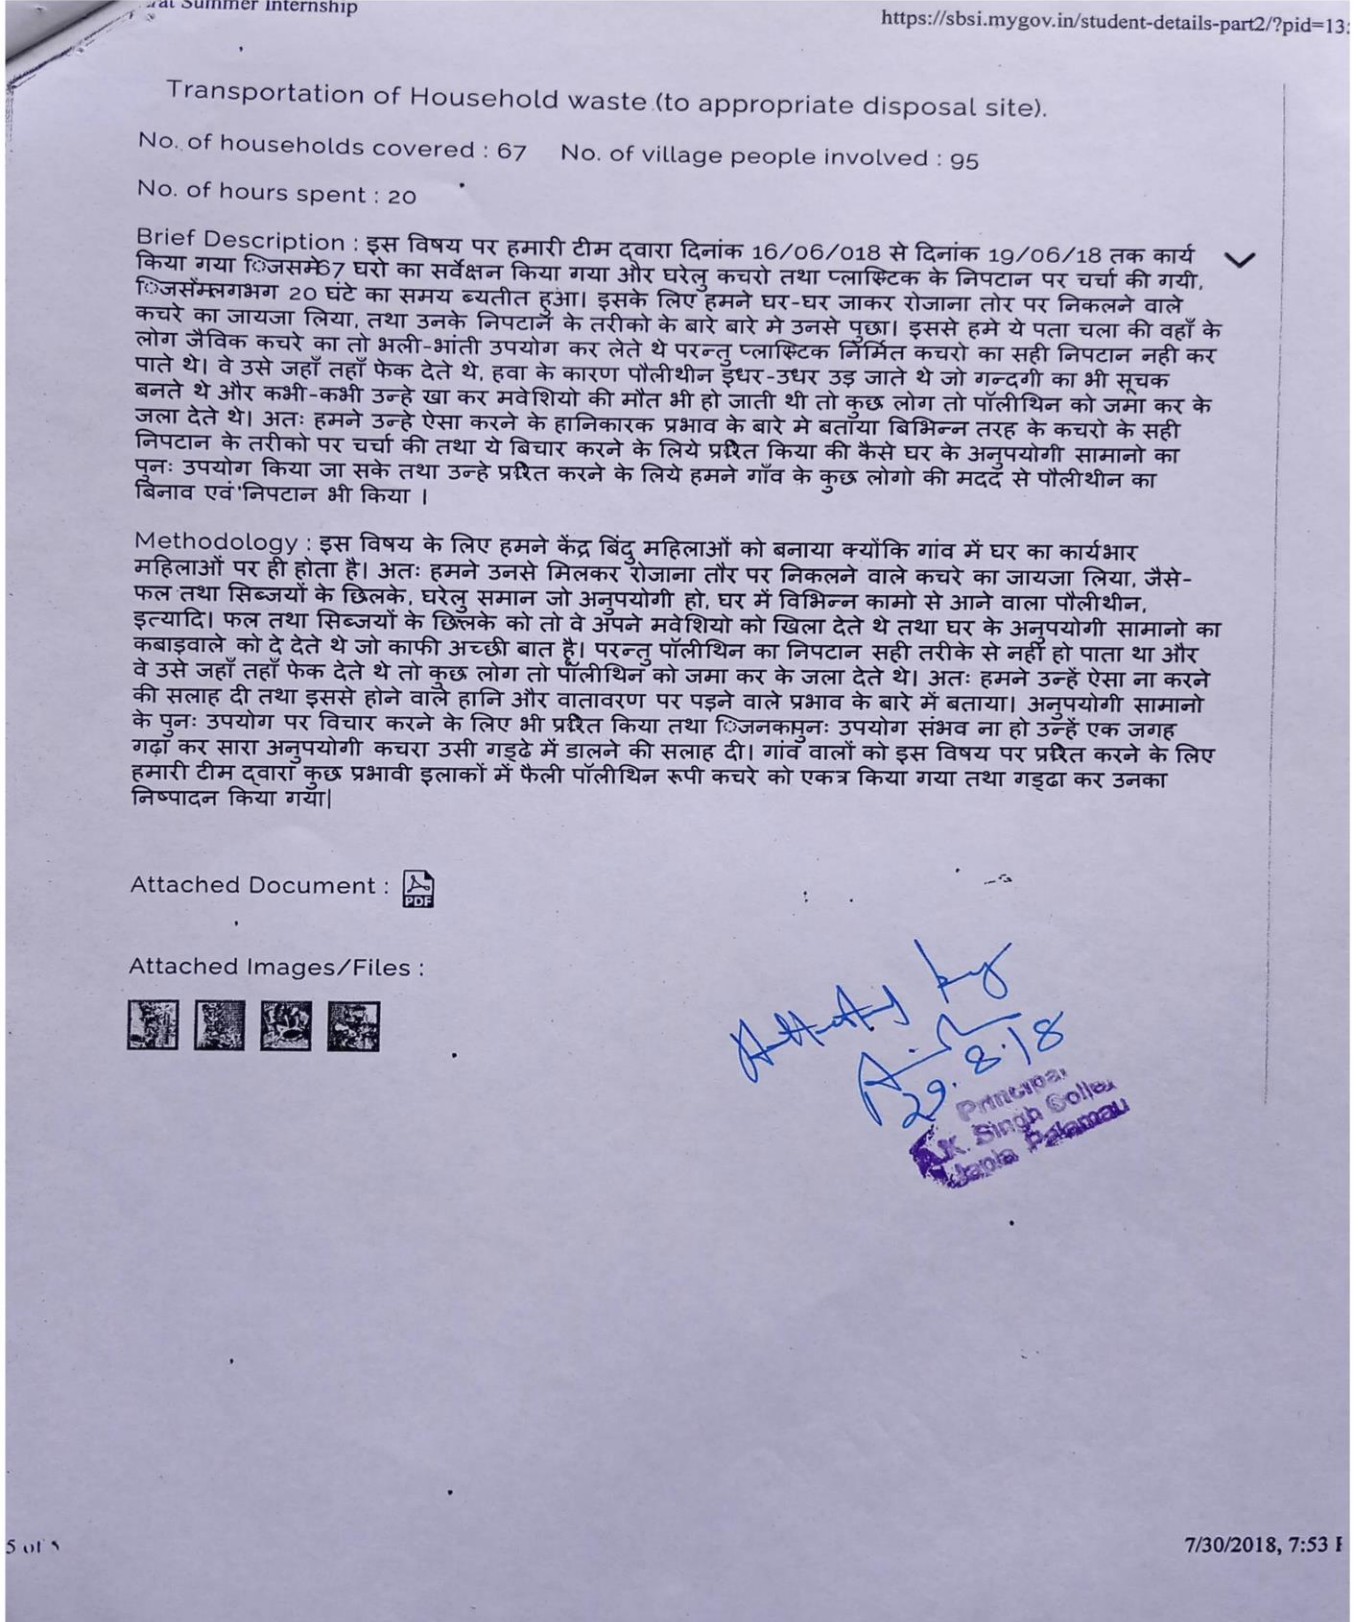 Summer Internship
https://sbsi.mygov.in/student-details-part2/?pid=13
Transportation of Household waste (to appropriate disposal site).
No. of households covered : 67 No. of village people involved : 95
No. of hours spent : 20
Brief Description : इस विषय पर हमारी टीम द्वारा दिनांक 16/06/018 से दिनांक 19/06/18 तक कार्य
किया गया िजसमे67 घरो का सर्वेक्षन किया गया और घरेलु कचरो तथा प्लास्टिक के निपटान पर चर्चा की गयी,
िजसमें लगभग 20 घंटे का समय ब्यतीत हुआ। इसके लिए हमने घर-घर जाकर रोजाना तोर पर निकलने वाले
कचरे का जायजा लिया, तथा उनके निपटाने के तरीको के बारे बारे मे उनसे पुछा। इससे हमे ये पता चला की वहाँ के
लोग जैविक कचरे का तो भली-भांती उपयोग कर लेते थे परन्तु प्लास्टिक निर्मित कचरो का सही निपटान नही कर
पाते थे। वे उसे जहाँ तहाँ फेक देते थे, हवा के कारण पौलीथीन इधर-उधर उड़ जाते थे जो गन्दगी का भी सूचक
बनते थे और कभी-कभी उन्हे खा कर मवेशियो की मौत भी हो जाती थी तो कुछ लोग तो पॉलीथिन को जमा कर के
जला देते थे। अतः हमने उन्हे ऐसा करने के हानिकारक प्रभाव के बारे मे बताया बिभिन्न तरह के कचरो के सही
निपटान के तरीको पर चर्चा की तथा ये बिचार करने के लिये प्ररेित किया की कैसे घर के अनुपयोगी सामानो का
पुनः उपयोग किया जा सके तथा उन्हे प्ररेित करने के लिये हमने गाँव के कुछ लोगो की मदद से पौलीथीन का
बिनाव एवं निपटान भी किया ।
Methodology : इस विषय के लिए हमने केंद्र बिंदु महिलाओं को बनाया क्योंकि गांव में घर का कार्यभार
महिलाओं पर ही होता है। अतः हमने उनसे मिलकर रोजाना तौर पर निकलने वाले कचरे का जायजा लिया, जैसे-
फल तथा सिब्जयों के छिलके, घरेलु समान जो अनुपयोगी हो, घर में विभिन्न कामो से आने वाला पौलीथीन,
इत्यादि। फल तथा सिब्जयों के छिलके को तो वे अपने मवेशियो को खिला देते थे तथा घर के अनुपयोगी सामानो का
कबाड़वाले को दे देते थे जो काफी अच्छी बात है। परन्तु पॉलीथिन का निपटान सही तरीके से नहीं हो पाता था और
वे उसे जहाँ तहाँ फेक देते थे तो कुछ लोग तो पॉलीथिन को जमा कर के जला देते थे। अतः हमने उन्हें ऐसा ना करने
की सलाह दी तथा इससे होने वाले हानि और वातावरण पर पड़ने वाले प्रभाव के बारे में बताया। अनुपयोगी सामानो
के पुनः उपयोग पर विचार करने के लिए भी प्ररेित किया तथा िजनका पुनः उपयोग संभव ना हो उन्हें एक जगह
गढ़ा कर सारा अनुपयोगी कचरा उसी गड्ढे में डालने की सलाह दी। गांव वालों को इस विषय पर प्ररेित करने के लिए
हमारी टीम द्वारा कुछ प्रभावी इलाकों में फैली पॉलीथिन रूपी कचरे को एकत्र किया गया तथा गड्ढा कर उनका
निष्पादन किया गया|
Attached Document :
PDF
Attached Images/Files :
Attested by
29.8.18
Principal
A.K. Singh College
Japla Palamau
5 of
7/30/2018, 7:53